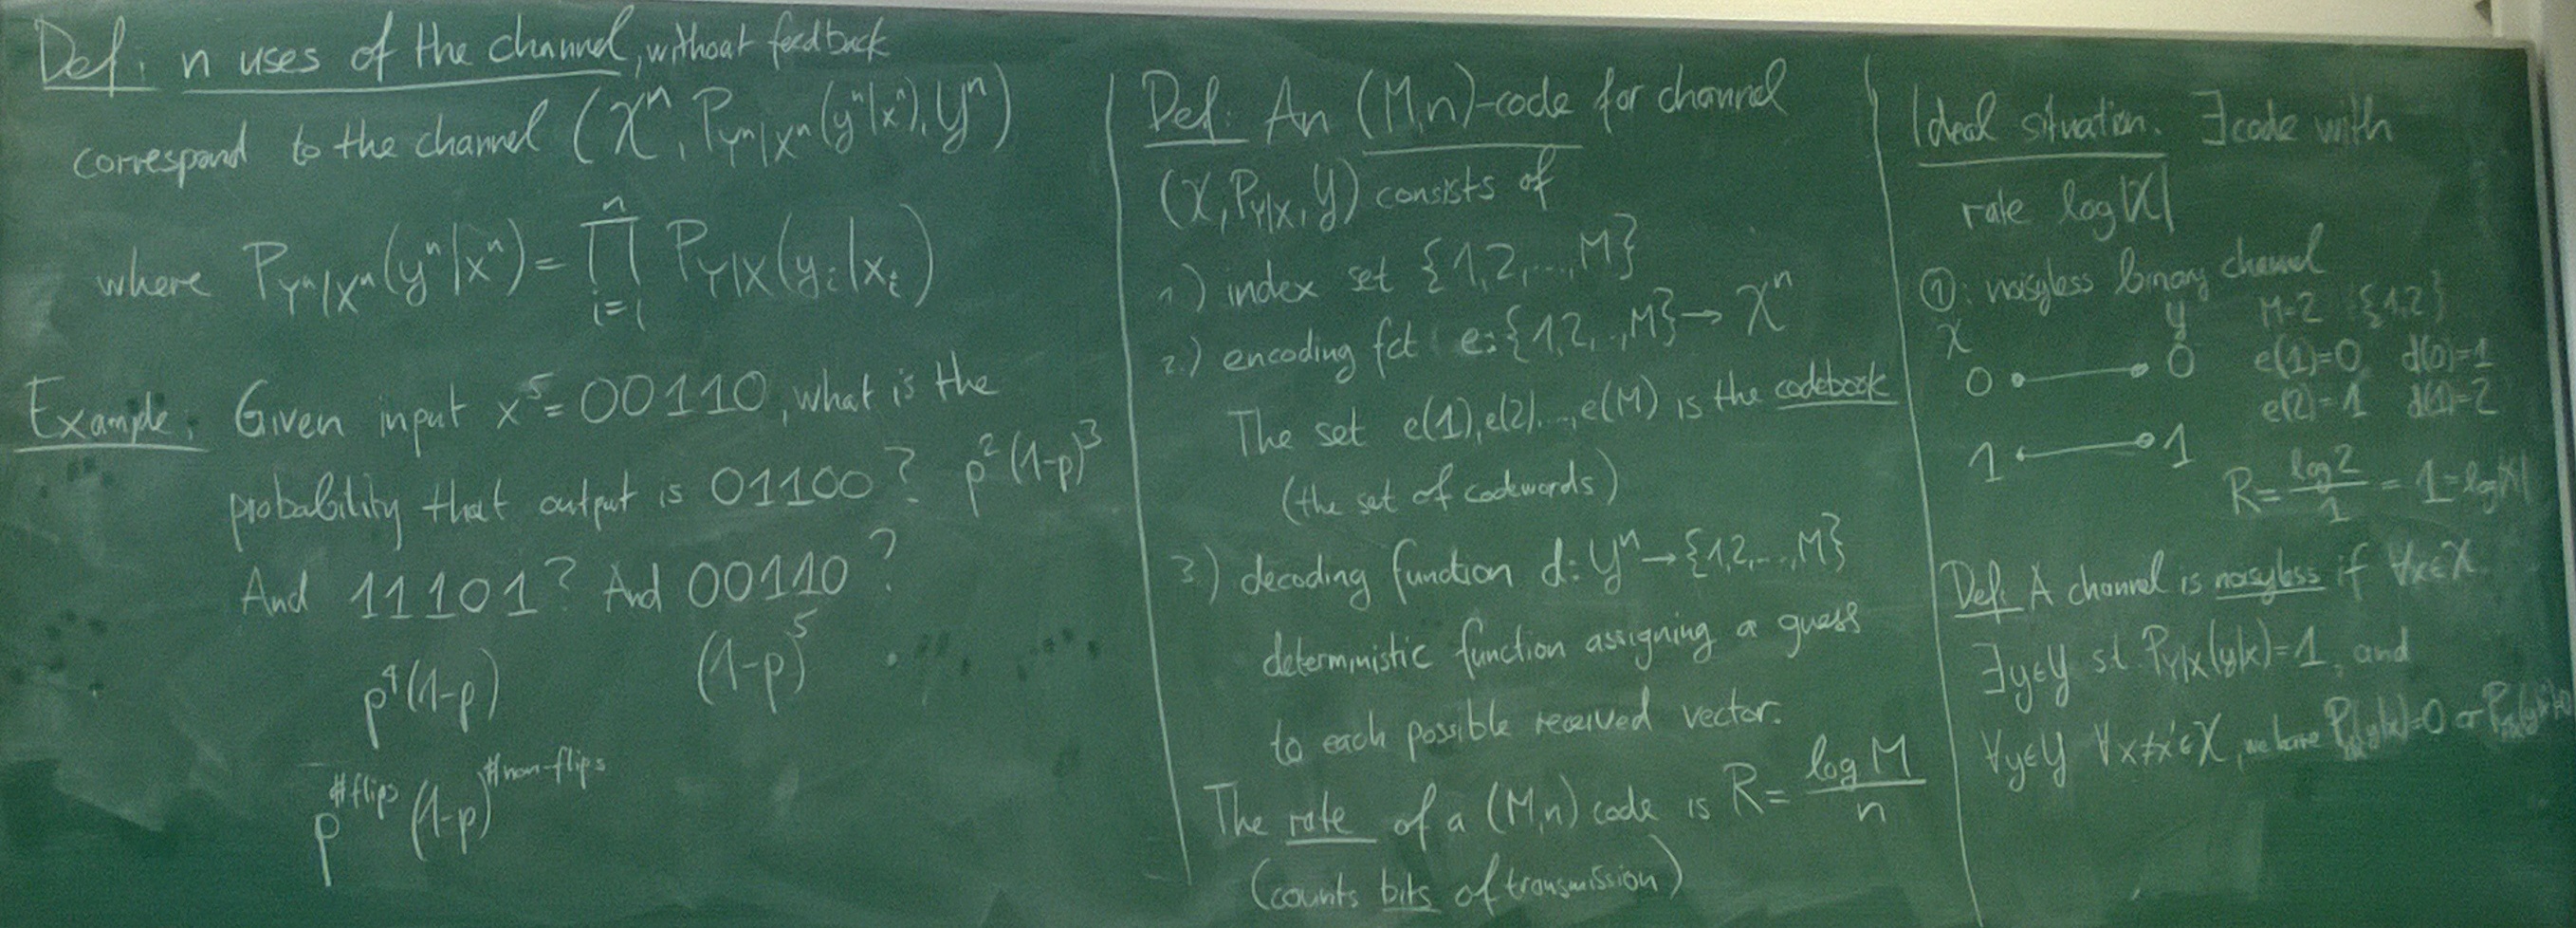 Def: n uses of the channel, without feedback
correspond to the channel (X^n, P_{Y^n|X^n}(y^n|x^n), Y^n)
where P_{Y^n|X^n}(y^n|x^n) = ∏_{i=1}^{n} P_{Y|X}(y_i|x_i)
Example: Given input x^5=00110, what is the
probability that output is 01100? p^2(1-p)^3
And 11101? And 00110?
p^4(1-p) (1-p)^5
p^{#flips}(1-p)^{#non-flips}
Def: An (M,n)-code for channel
(X, P_{Y|X}, Y) consists of
1.) index set {1,2,...,M}
2.) encoding fct e: {1,2,..,M} → X^n
The set e(1),e(2),...,e(M) is the codebook
(the set of codewords)
3.) decoding function d: Y^n → {1,2,...,M}
deterministic function assigning a guess
to each possible received vector.
The rate of a (M,n) code is R = log M / n
(counts bits of transmission)
Ideal situation: ∃ code with
rate log|X|
①: noisyless binary channel
X Y M=2 {1,2}
0 0 e(1)=0 d(0)=1
e(2)=1 d(1)=2
1 1
R = log 2 / 1 = 1 = log|X|
Def: A channel is noisyless if ∀x∈X
∃y∈Y st. P_{Y|X}(y|x)=1, and
∀y∈Y ∀x≠x'∈X, we have P_{Y|X}(y|x)=0 or